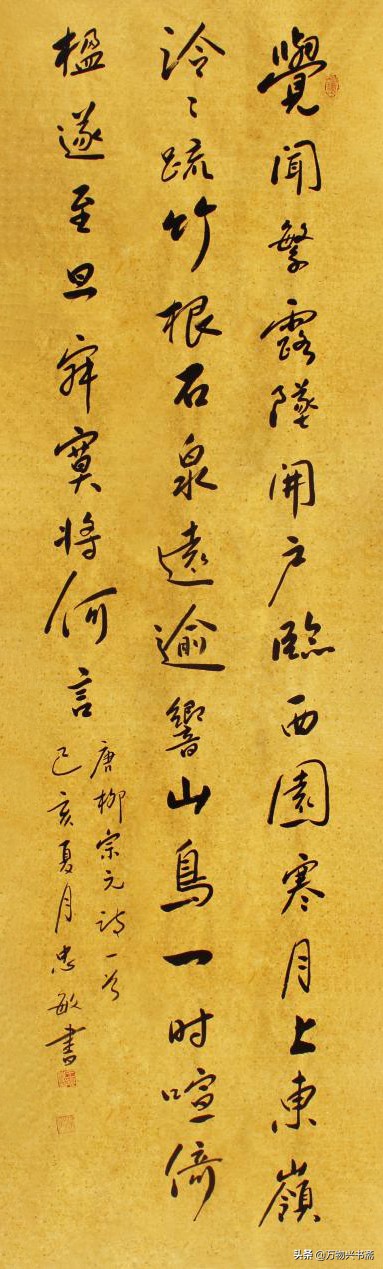 覺聞繁露墜開户臨西園寒月上東嶺
泠々疏竹根石泉遠逾響山鳥一时喧倚
楹遂至旦寂寞將何言
唐柳宗元詩一首
己亥夏月忠敏書
头条 @万物兴书斋